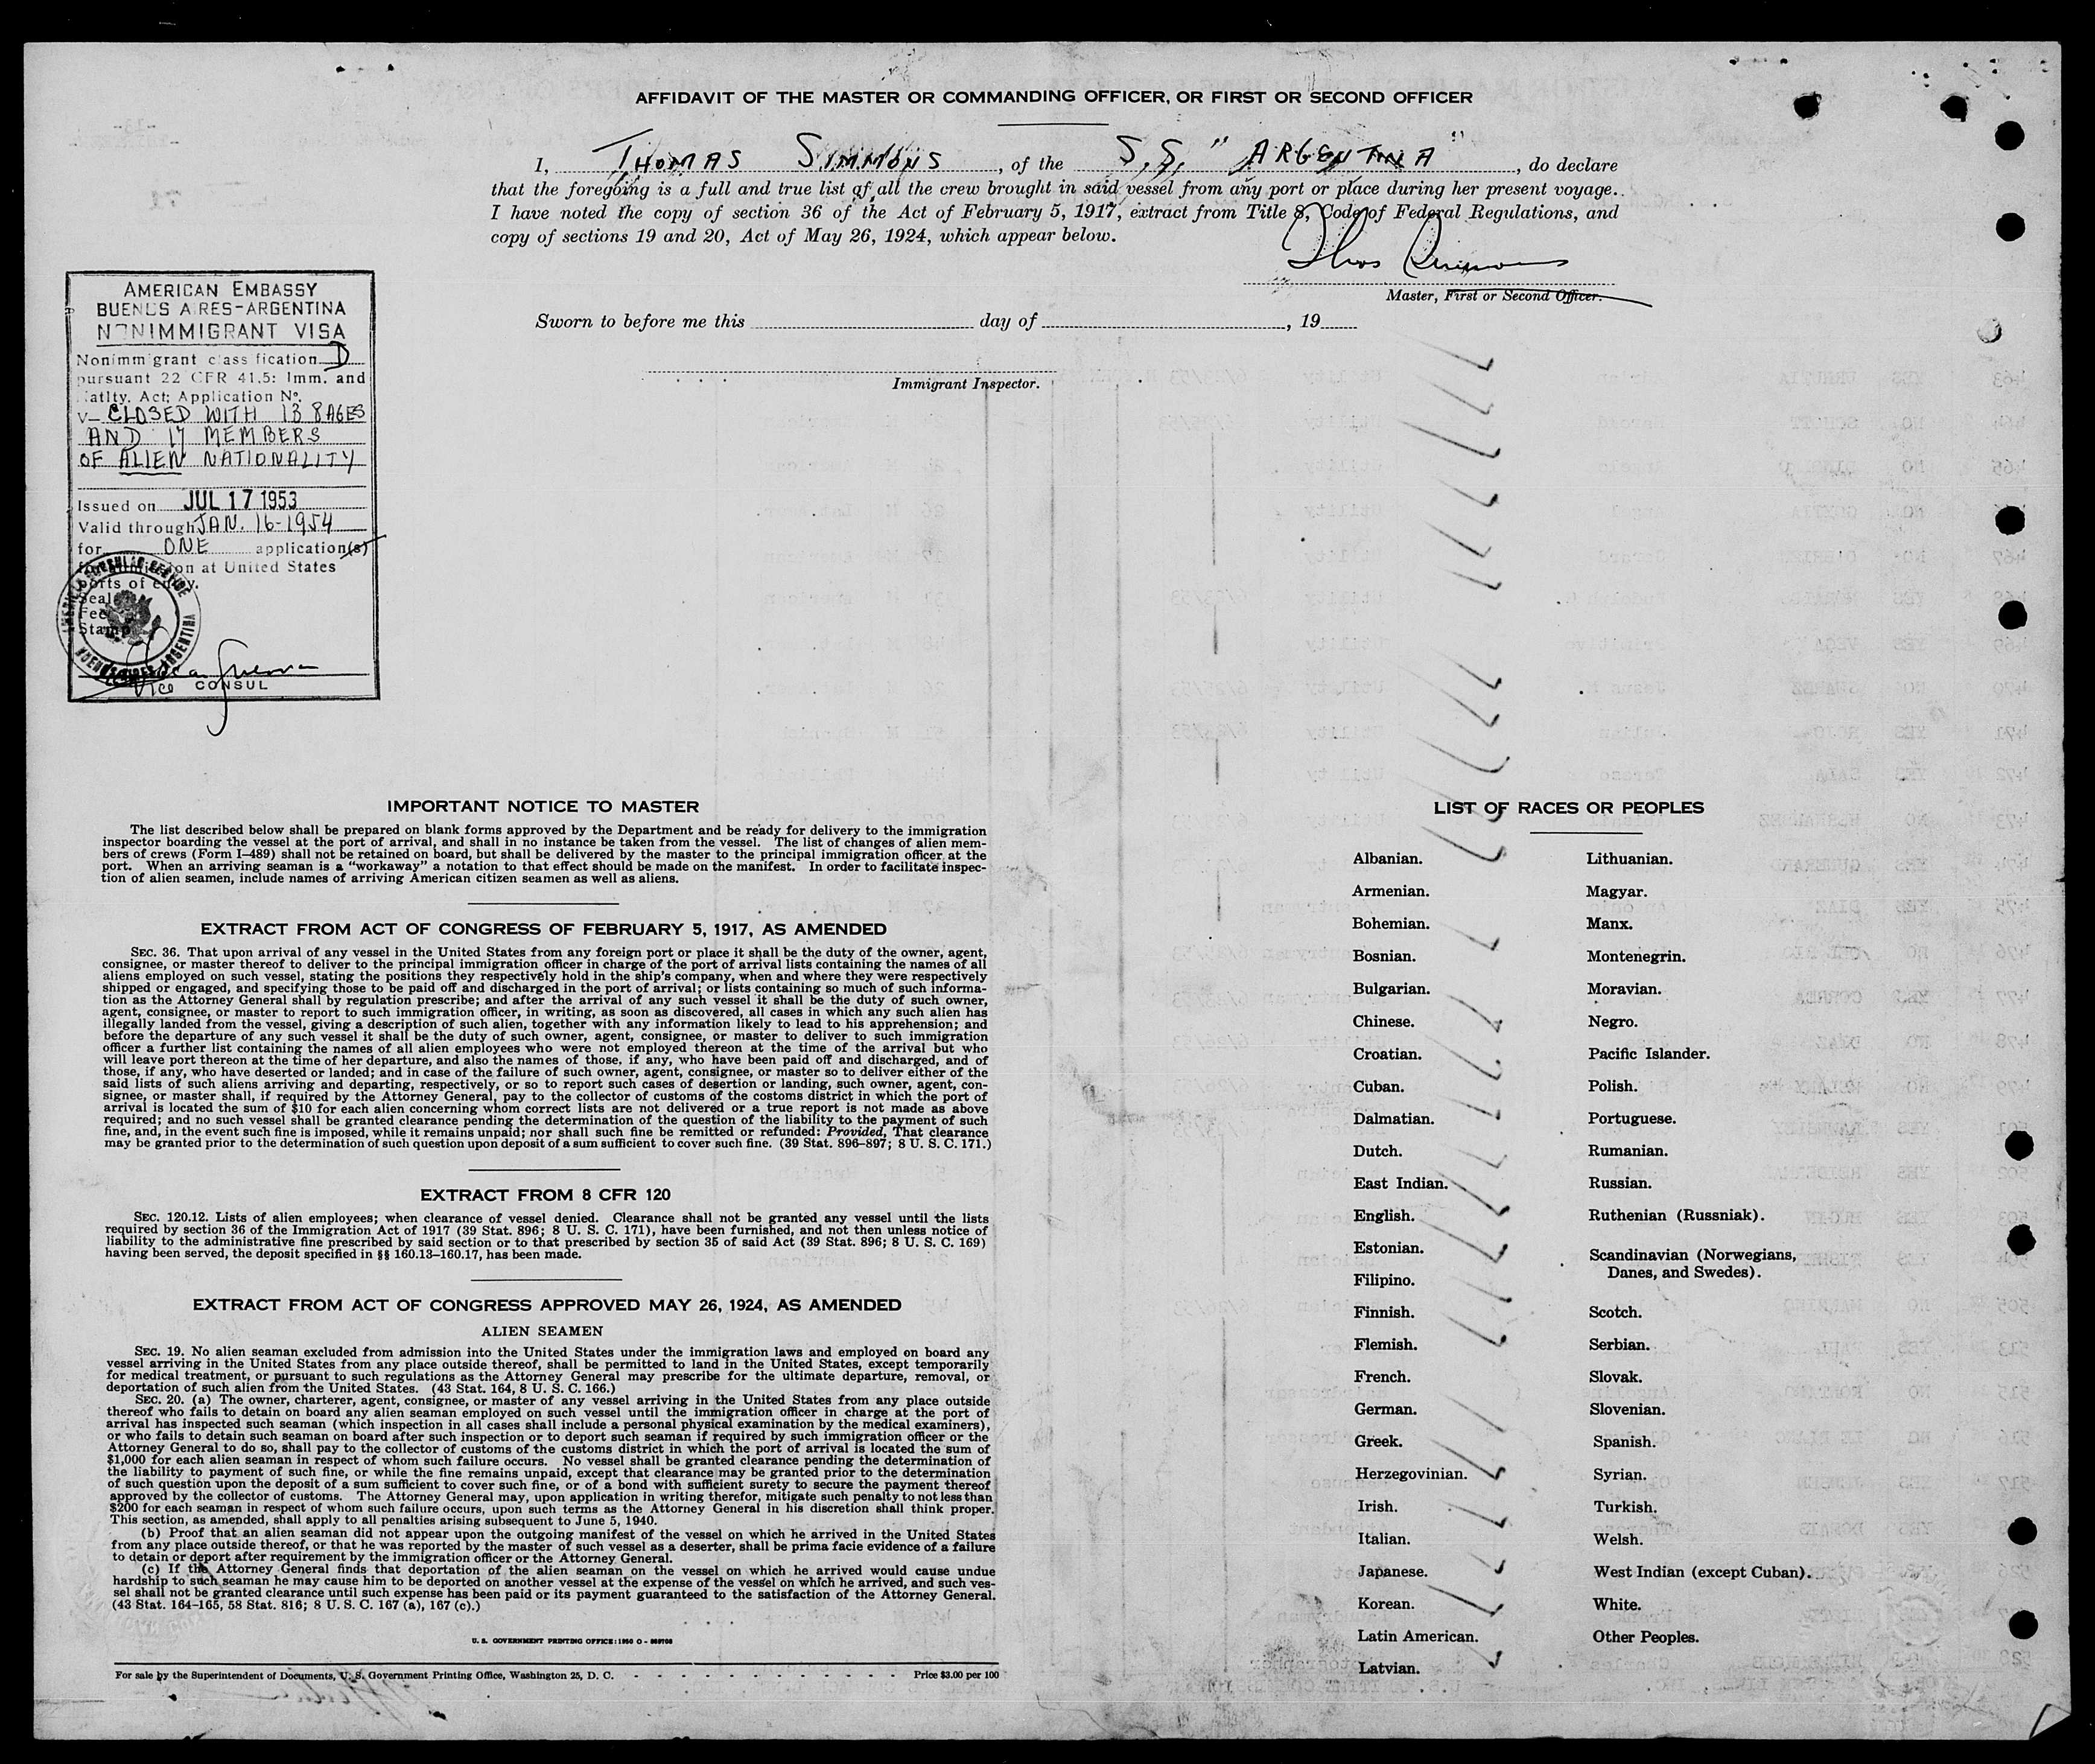 AFFIDAVIT OF THE MASTER OR COMMANDING OFFICER, OR FIRST OR SECOND OFFICER
I, THOMAS SIMMONS, of the S.S. "ARGENTINA", do declare
that the foregoing is a full and true list of all the crew brought in said vessel from any port or place during her present voyage.
I have noted the copy of section 36 of the Act of February 5, 1917, extract from Title 8, Code of Federal Regulations, and
copy of sections 19 and 20, Act of May 26, 1924, which appear below.
Thos Simmons
Master, First or Second Officer.
Sworn to before me this day of , 19
Immigrant Inspector.
AMERICAN EMBASSY
BUENOS AIRES-ARGENTINA
NONIMMIGRANT VISA
Nonimmigrant classification D
pursuant 22 CFR 41.5: Imm. and
Natlty. Act; Application No.
V- CLOSED WITH 13 PAGES
AND 17 MEMBERS
OF ALIEN NATIONALITY
Issued on JUL 17 1953
Valid through JAN. 16-1954
for ONE application(s)
for admission at United States
ports of entry.
Seal
Fee
Stamp
AMERICAN CONSULAR SERVICE
BUENOS AIRES, ARGENTINA
Vice CONSUL
IMPORTANT NOTICE TO MASTER
The list described below shall be prepared on blank forms approved by the Department and be ready for delivery to the immigration
inspector boarding the vessel at the port of arrival, and shall in no instance be taken from the vessel. The list of changes of alien mem-
bers of crews (Form I-489) shall not be retained on board, but shall be delivered by the master to the principal immigration officer at the
port. When an arriving seaman is a "workaway" a notation to that effect should be made on the manifest. In order to facilitate inspec-
tion of alien seamen, include names of arriving American citizen seamen as well as aliens.
EXTRACT FROM ACT OF CONGRESS OF FEBRUARY 5, 1917, AS AMENDED
SEC. 36. That upon arrival of any vessel in the United States from any foreign port or place it shall be the duty of the owner, agent,
consignee, or master thereof to deliver to the principal immigration officer in charge of the port of arrival lists containing the names of all
aliens employed on such vessel, stating the positions they respectively hold in the ship's company, when and where they were respectively
shipped or engaged, and specifying those to be paid off and discharged in the port of arrival; or lists containing so much of such informa-
tion as the Attorney General shall by regulation prescribe; and after the arrival of any such vessel it shall be the duty of such owner,
agent, consignee, or master to report to such immigration officer, in writing, as soon as discovered, all cases in which any such alien has
illegally landed from the vessel, giving a description of such alien, together with any information likely to lead to his apprehension; and
before the departure of any such vessel it shall be the duty of such owner, agent, consignee, or master to deliver to such immigration
officer a further list containing the names of all alien employees who were not employed thereon at the time of the arrival but who
will leave port thereon at the time of her departure, and also the names of those, if any, who have been paid off and discharged, and of
those, if any, who have deserted or landed; and in case of the failure of such owner, agent, consignee, or master so to deliver either of the
said lists of such aliens arriving and departing, respectively, or so to report such cases of desertion or landing, such owner, agent, con-
signee, or master shall, if required by the Attorney General, pay to the collector of customs of the costoms district in which the port of
arrival is located the sum of $10 for each alien concerning whom correct lists are not delivered or a true report is not made as above
required; and no such vessel shall be granted clearance pending the determination of the question of the liability to the payment of such
fine, and, in the event such fine is imposed, while it remains unpaid; nor shall such fine be remitted or refunded: Provided, That clearance
may be granted prior to the determination of such question upon deposit of a sum sufficient to cover such fine. (39 Stat. 896-897; 8 U. S. C. 171.)
EXTRACT FROM 8 CFR 120
SEC. 120.12. Lists of alien employees; when clearance of vessel denied. Clearance shall not be granted any vessel until the lists
required by section 36 of the Immigration Act of 1917 (39 Stat. 896; 8 U. S. C. 171), have been furnished, and not then unless notice of
liability to the administrative fine prescribed by said section or to that prescribed by section 35 of said Act (39 Stat. 896; 8 U. S. C. 169)
having been served, the deposit specified in §§ 160.13-160.17, has been made.
EXTRACT FROM ACT OF CONGRESS APPROVED MAY 26, 1924, AS AMENDED
ALIEN SEAMEN
SEC. 19. No alien seaman excluded from admission into the United States under the immigration laws and employed on board any
vessel arriving in the United States from any place outside thereof, shall be permitted to land in the United States, except temporarily
for medical treatment, or pursuant to such regulations as the Attorney General may prescribe for the ultimate departure, removal, or
deportation of such alien from the United States. (43 Stat. 164, 8 U. S. C. 166.)
SEC. 20. (a) The owner, charterer, agent, consignee, or master of any vessel arriving in the United States from any place outside
thereof who fails to detain on board any alien seaman employed on such vessel until the immigration officer in charge at the port of
arrival has inspected such seaman (which inspection in all cases shall include a personal physical examination by the medical examiners),
or who fails to detain such seaman on board after such inspection or to deport such seaman if required by such immigration officer or the
Attorney General to do so, shall pay to the collector of customs of the customs district in which the port of arrival is located the sum of
$1,000 for each alien seaman in respect of whom such failure occurs. No vessel shall be granted clearance pending the determination of
the liability to payment of such fine, or while the fine remains unpaid, except that clearance may be granted prior to the determination
of such question upon the deposit of a sum sufficient to cover such fine, or of a bond with sufficient surety to secure the payment thereof
approved by the collector of customs. The Attorney General may, upon application in writing therefor, mitigate such penalty to not less than
$200 for each seaman in respect of whom such failure occurs, upon such terms as the Attorney General in his discretion shall think proper.
This section, as amended, shall apply to all penalties arising subsequent to June 5, 1940.
(b) Proof that an alien seaman did not appear upon the outgoing manifest of the vessel on which he arrived in the United States
from any place outside thereof, or that he was reported by the master of such vessel as a deserter, shall be prima facie evidence of a failure
to detain or deport after requirement by the immigration officer or the Attorney General.
(c) If the Attorney General finds that deportation of the alien seaman on the vessel on which he arrived would cause undue
hardship to such seaman he may cause him to be deported on another vessel at the expense of the vessel on which he arrived, and such ves-
sel shall not be granted clearance until such expense has been paid or its payment guaranteed to the satisfaction of the Attorney General.
(43 Stat. 164-165, 58 Stat. 816; 8 U. S. C. 167 (a), 167 (c).)
U. S. GOVERNMENT PRINTING OFFICE: 1950 O -
For sale by the Superintendent of Documents, U. S. Government Printing Office, Washington 25, D. C. - - - - - - - - - - - Price $3.00 per 100
LIST OF RACES OR PEOPLES
Albanian.
Armenian.
Bohemian.
Bosnian.
Bulgarian.
Chinese.
Croatian.
Cuban.
Dalmatian.
Dutch.
East Indian.
English.
Estonian.
Filipino.
Finnish.
Flemish.
French.
German.
Greek.
Herzegovinian.
Irish.
Italian.
Japanese.
Korean.
Latin American.
Latvian.
Lithuanian.
Magyar.
Manx.
Montenegrin.
Moravian.
Negro.
Pacific Islander.
Polish.
Portuguese.
Rumanian.
Russian.
Ruthenian (Russniak).
Scandinavian (Norwegians,
Danes, and Swedes).
Scotch.
Serbian.
Slovak.
Slovenian.
Spanish.
Syrian.
Turkish.
Welsh.
West Indian (except Cuban).
White.
Other Peoples.